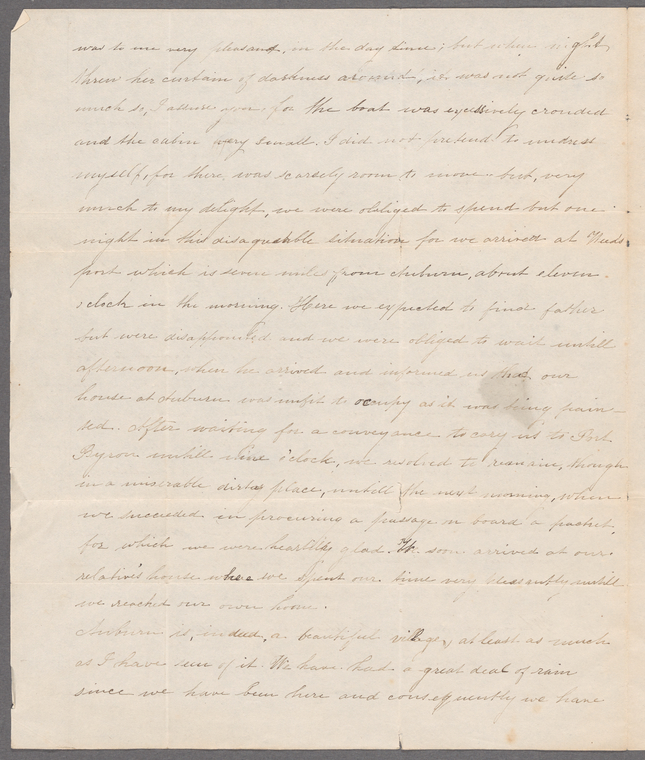 was to me very pleasant, in the day time; but when night
threw her curtain of darkness around, it was not quite so
much so, I assure you, for the boat was excessively crouded
and the cabin very small. I did not pretend to undress
myself, for there was scarsely room to move but, very
much to my delight, we were obliged to spend but one
night in this disagreable situation for we arrived at Weeds
port which is seven miles from Auburn, about eleven
o'clock in the morning. Here we expected to find father
but were disappointed and we were obliged to wait untill
afternoon, when he arrived and informed us that our
house at Auburn was unfit to occupy as it was being pain-
ted. After waiting for a conveyance to cary us to Port
Byron untill nine o'clock, we resolved to remain, though
in a miserable dirty place, untill the next morning, when
we succeeded in procuring a passage on board a packet,
for which we were heartily glad. We soon arrived at our
relative's house where we spent our time very pleasantly untill
we reached our own home.
Auburn is, indeed, a beautiful village, at least as much
as I have seen of it. We have had a great deal of rain
since we have been here and consequently we have